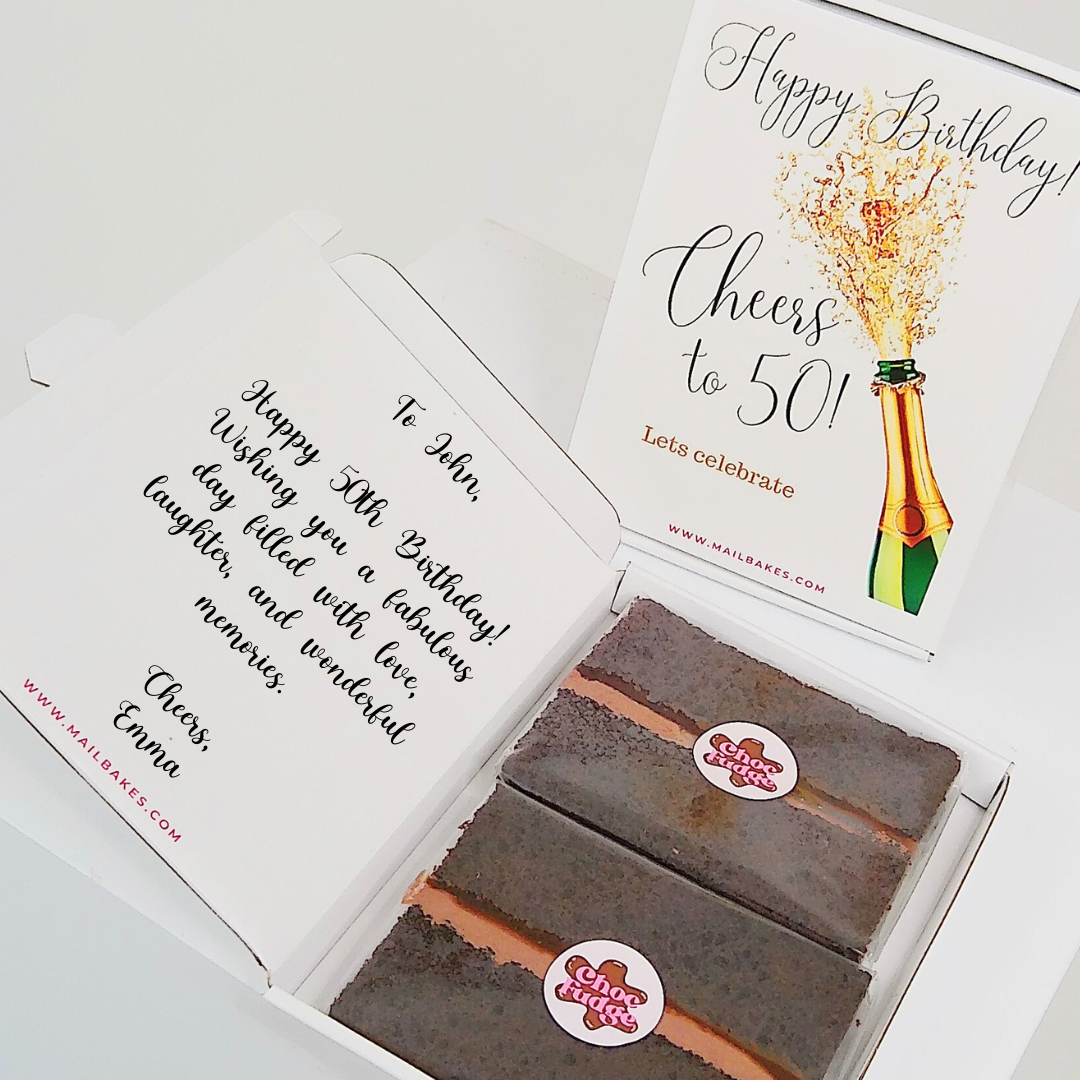 Happy Birthday!
Cheers
to 50!
Lets celebrate
WWW.MAILBAKES.COM
To John,
Happy 50th Birthday!
Wishing you a fabulous
day filled with love,
laughter, and wonderful
memories.
Cheers,
Emma
WWW.MAILBAKES.COM
Choc
Fudge
Choc
Fudge